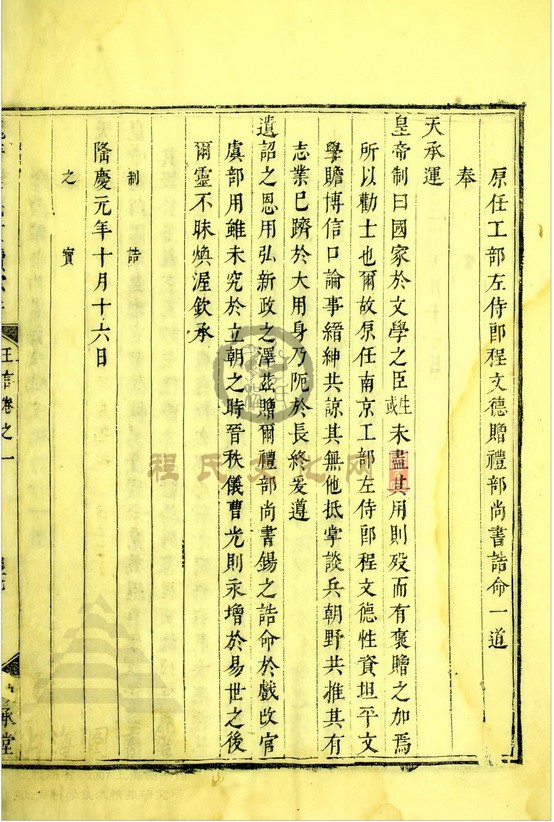 原任工部左侍郎程文德贈禮部尚書誥命一道
奉
天承運
皇帝制曰國家於文學之臣或生未盡其用則歿而有褒贈之加焉
所以勸士也爾故原任南京工部左侍郎程文德性資坦平文
學贍博信口論事縉紳共諒其無他抵掌談兵朝野共推其有
志業已躋於大用身乃阨於長終爰遵
遺詔之恩用弘新政之澤茲贈爾禮部尚書錫之誥命於戲改官
虞部用雖未究於立朝之時晉秩儀曹光則永增於易世之後
爾靈不昧煥渥欽承
制誥
隆慶元年十月十六日
之寶
王言卷之一
承堂
程氏文化网